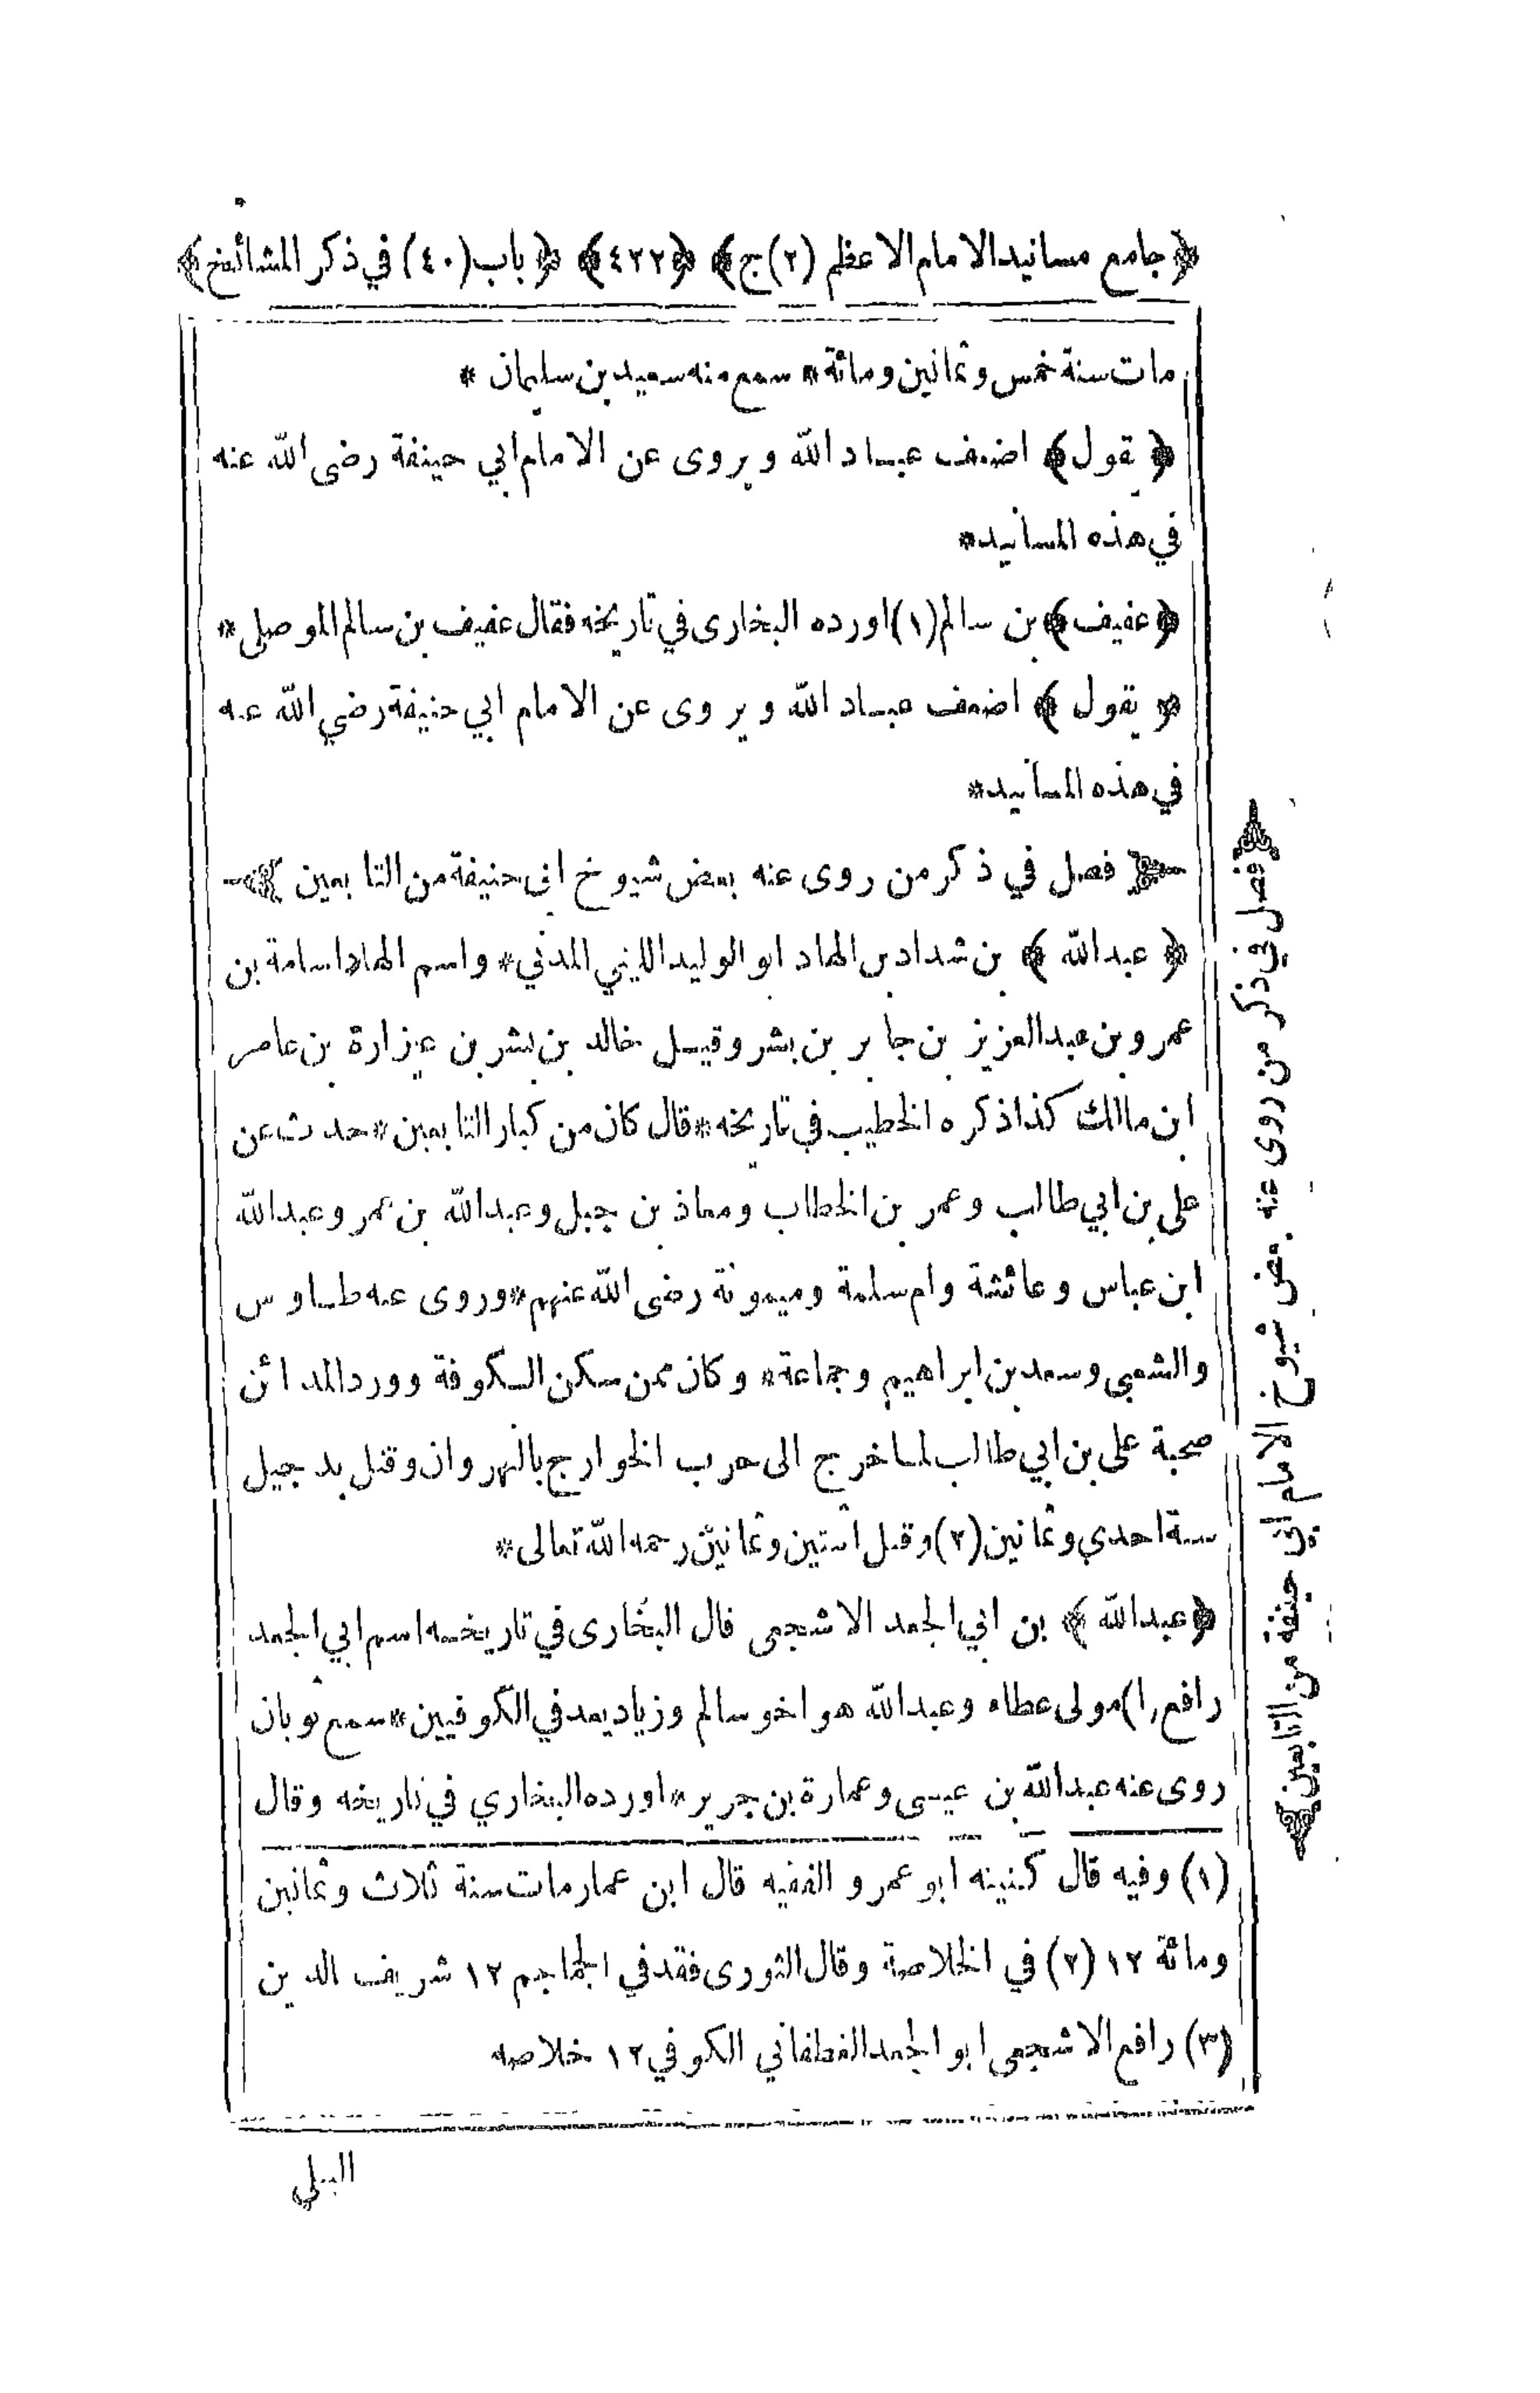 ﴿جامع مسانيد الامام الاعظم (٢) ج﴾ ﴿٤٢٢﴾ ﴿باب (٤٠) في ذكر المشائخ﴾
مات سنة خمس وثمانين ومائة * سمع منه سعيد بن سليمان *
﴿يقول﴾ اضعف عباد الله ويروى عن الامام ابي حنيفة رضى الله عنه
في هذه المسانيد *
﴿عفيف﴾ بن سالم (١) اورده البخارى في تاريخه فقال عفيف بن سالم الموصلى *
﴿يقول﴾ اضعف عباد الله ويروى عن الامام ابي حنيفة رضي الله عنه
في هذه المسانيد *
﴿فصل في ذكر من روى عنه بعض شيوخ ابى حنيفة من التابعين﴾
﴿عبدالله﴾ بن شداد بن الهاد ابو الوليد الليثي المدني * واسم الهاد اسامة بن
عمرو بن عبدالعزيز بن جابر بن بشر وقيل خالد بن بشر بن عيزارة بن عامر
ابن مالك كذا ذكره الخطيب في تاريخه * قال كان من كبار التابعين * حدث عن
على بن ابي طالب وعمر بن الخطاب ومعاذ بن جبل وعبدالله بن عمر وعبدالله
ابن عباس وعائشة وام سلمة وميمونة رضى الله عنهم * وروى عنه طاوس
والشعبى وسعد بن ابراهيم وجماعة * وكان ممن سكن الكوفة وورد المدائن
صحبة على بن ابي طالب لما خرج الى حرب الخوارج بالنهروان وقتل بدجيل
سنة احدي وثمانين (٢) وقيل اثنتين وثمانين رحمه الله تعالى *
﴿عبدالله﴾ بن ابي الجعد الاشجعى قال البخارى في تاريخه اسم ابي الجعد
رافع (١) مولى عطاء وعبدالله هو اخو سالم وزياد يعد في الكوفيين * سمع ثوبان
روى عنه عبدالله بن عيسى وعمارة بن جرير * اورده البخاري في تاريخه وقال
(١) وفيه قال كنيته ابو عمرو الفقيه قال ابن عمار مات سنة ثلاث وثمانين
ومائة ١٢ (٢) في الخلاصة وقال الثورى فقد في الجماجم ١٢ شريف الدين
(٣) رافع الاشجعى ابو الجعد الغطفاني الكوفي ١٢ خلاصه
﴿فصل في ذكر من روى عنه بعض شيوخ الامام ابي حنيفة من التابعين﴾